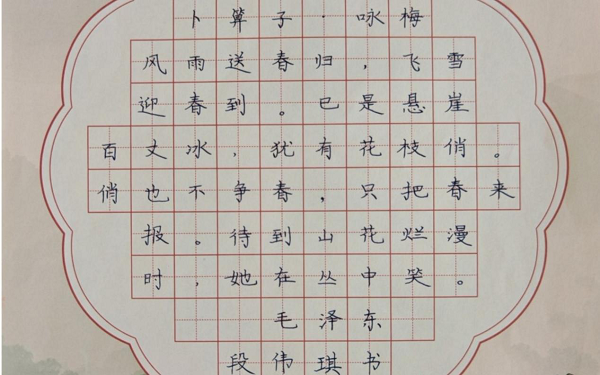 卜算子·咏梅
风雨送春归，飞雪
迎春到。已是悬崖
百丈冰，犹有花枝俏。
俏也不争春，只把春来
报。待到山花烂漫
时，她在丛中笑。
毛泽东
段伟琪书